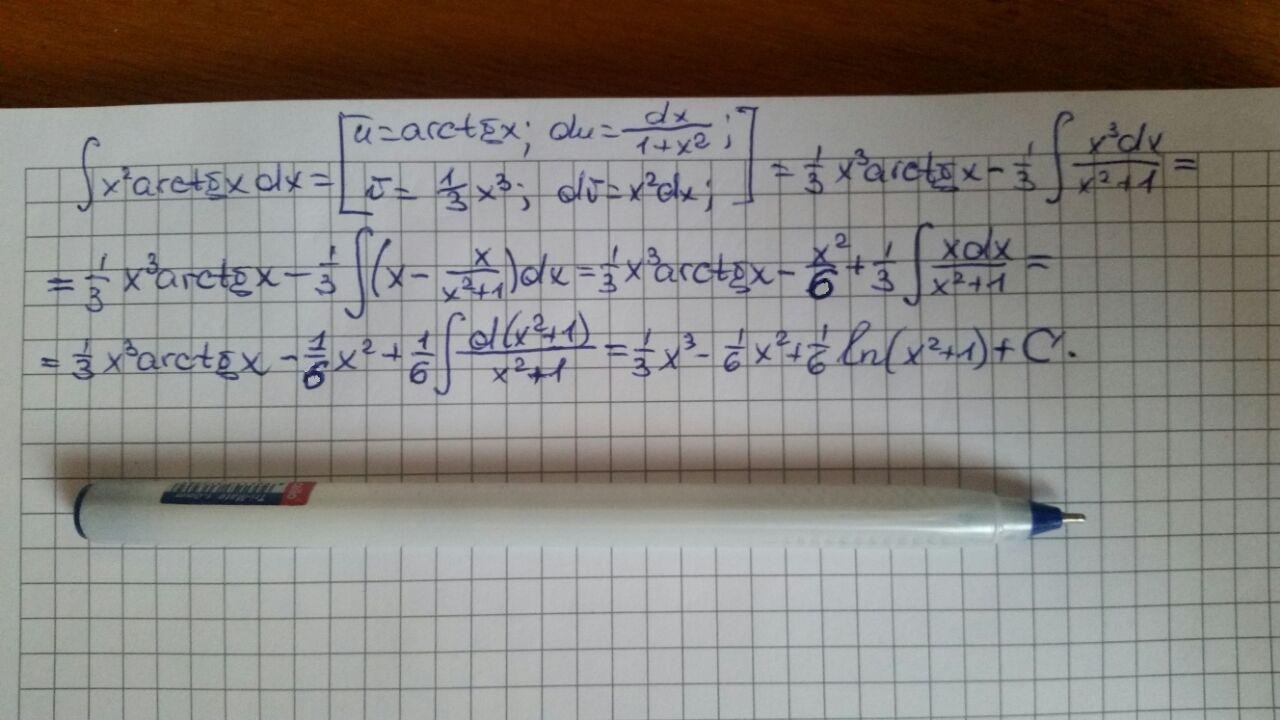 ∫x²arctgx dx = [u = arctgx; du = dx/(1+x²); v = 1/3 x³; dv = x²dx;] = 1/3 x³arctgx − 1/3 ∫ x³dx/(x²+1) =
= 1/3 x³arctgx − 1/3 ∫(x − x/(x²+1))dx = 1/3 x³arctgx − x²/6 + 1/3 ∫ xdx/(x²+1) =
= 1/3 x³arctgx − 1/6 x² + 1/6 ∫ d(x²+1)/(x²+1) = 1/3 x³ − 1/6 x² + 1/6 ln(x²+1) + C.